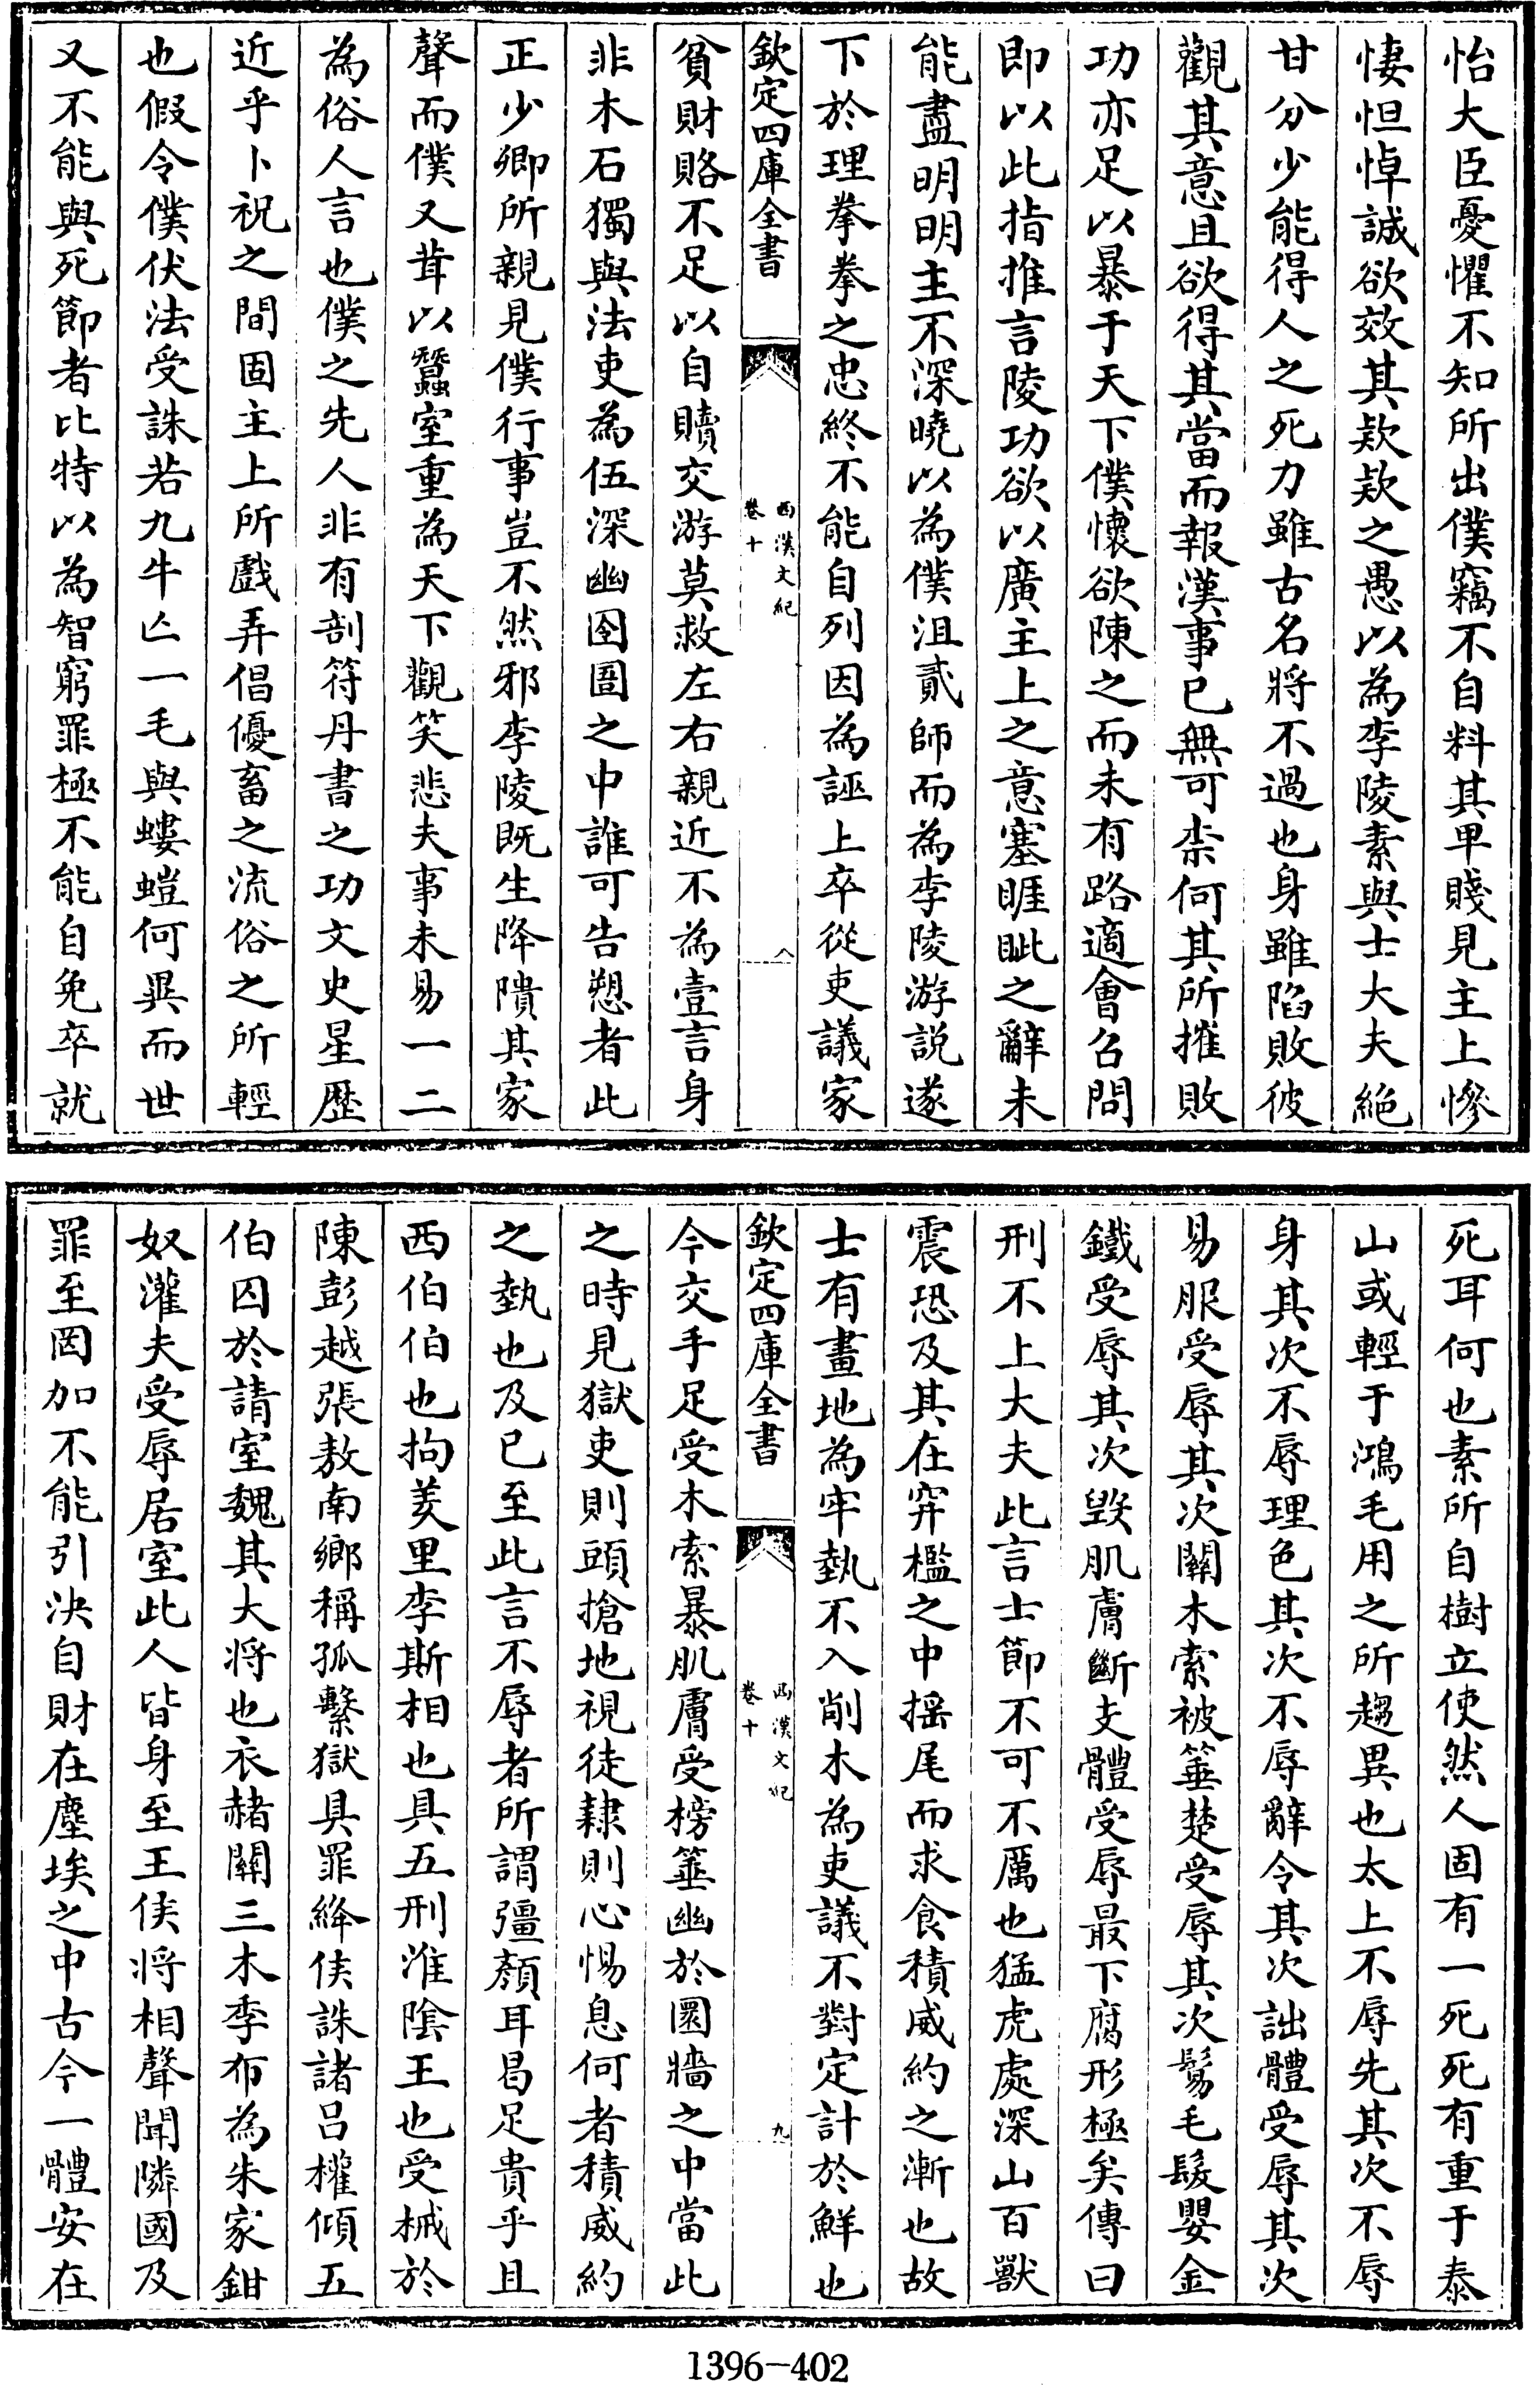 怡大臣憂懼不知所出僕竊不自料其卑賤見主上慘
悽怛悼誠欲效其款款之愚以為李陵素與士大夫絶
甘分少能得人之死力雖古名將不過也身雖陷敗彼
觀其意且欲得其當而報漢事已無可柰何其所摧敗
功亦足以暴于天下僕懷欲陳之而未有路適會召問
即以此指推言陵功欲以廣主上之意塞睚眦之辭未
能盡明明主不深曉以為僕沮貳師而為李陵游説遂
下於理拳拳之忠終不能自列因為誣上卒從吏議家
欽定四庫全書
西漢文紀
卷十
八
貧財賂不足以自贖交游莫救左右親近不為壹言身
非木石獨與法吏為伍深幽囹圄之中誰可告愬者此
正少卿所親見僕行事豈不然邪李陵既生降隤其家
聲而僕又茸以蠶室重為天下觀笑悲夫事未易一二
為俗人言也僕之先人非有剖符丹書之功文史星歴
近乎卜祝之間固主上所戲弄倡優畜之流俗之所輕
也假令僕伏法受誅若九牛亡一毛與螻螘何異而世
又不能與死節者比特以為智窮罪極不能自免卒就
死耳何也素所自樹立使然人固有一死死有重于泰
山或輕于鴻毛用之所趨異也太上不辱先其次不辱
身其次不辱理色其次不辱辭令其次詘體受辱其次
易服受辱其次關木索被箠楚受辱其次鬄毛髮嬰金
鐵受辱其次毁肌膚斷支體受辱最下腐形極矣傳曰
刑不上大夫此言士節不可不厲也猛虎處深山百獸
震恐及其在穽檻之中搖尾而求食積威約之漸也故
士有畫地為牢埶不入削木為吏議不對定計於鮮也
欽定四庫全書
西漢文紀
卷十
九
今交手足受木索暴肌膚受榜箠幽於圜牆之中當此
之時見獄吏則頭搶地視徒隷則心惕息何者積威約
之埶也及已至此言不辱者所謂彊顔耳曷足貴乎且
西伯伯也拘羑里李斯相也具五刑淮陰王也受械於
陳彭越張敖南鄉稱孤繫獄具罪絳侯誅諸呂權傾五
伯囚於請室魏其大將也衣赭關三木季布為朱家鉗
奴灌夫受辱居室此人皆身至王侯將相聲聞隣國及
罪至罔加不能引決自財在塵埃之中古今一體安在
1396-402